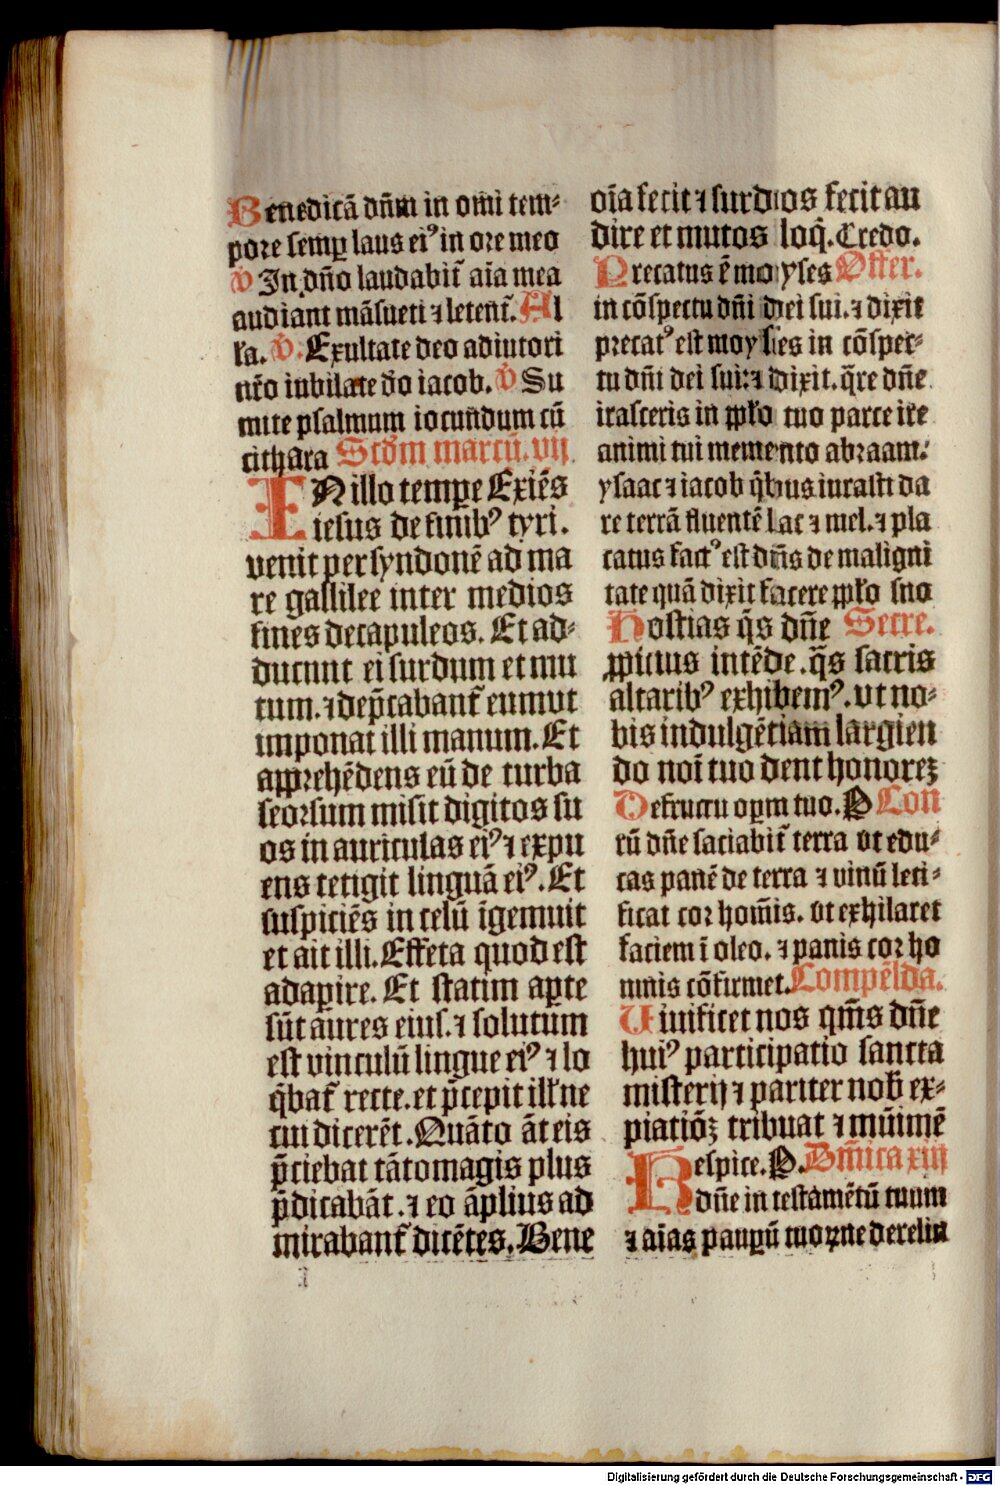 Benedicā dn̄m in om̄i tem⸗
pore semꝑ laus eiꝰ in ore meo
v̄ In dn̄o laudabit̄ aīa mea
audiant māsueti ⁊ letent̄. Al
l'a. v̄. Exultate deo adiutori
nr̄o iubilate d̄o iacob. v̄ Su
mite psalmum iocundum cū
cithara Scd̄m marcū. vij
IN illo tempꝑe Exiēs
iesus de finibꝰ tyri.
venit per syndonē ad ma
re gallilee inter medios
fines decapuleos. Et ad⸗
ducunt ei surdum et mu
tum. ⁊ dep̄cabant̄ eum vt
imponat illi manum. Et
apprehēdens eū de turba
seorsum misit digitos su
os in auriculas eiꝰ ⁊ expu
ens tetigit linguā eiꝰ. Et
suspiciēs in celū īgemuit
et ait illi. Effeta quod est
adaꝑire. Et statim aꝑte
sūt aures eius. ⁊ solutum
est vinculū lingue eiꝰ ⁊ lo
q̄bat̄ recte. et p̄cepit ill' ne
cui dicerēt. Quāto āt eis
p̄ciebat tāto magis plus
p̄dicabāt. ⁊ eo āplius ad
mirabant̄ dicētes. Bene
oīa fecit ⁊ surdos fecit au
dire et mutos loq̄. Credo.
Precatus ē moyses Offer.
in cōspectu dn̄i dei sui. ⁊ dixit
precatꝰ est moyses in cōspec⸗
tu dn̄i dei sui: ⁊ dixit. q̄re dn̄e
irasceris in ppl'o tuo parce ire
animi tui memento abraam:
ysaac ⁊ iacob q̄bus iurasti da
re terrā fluentē lac ⁊ mel. ⁊ pla
catus factꝰ est dn̄s de maligni
tate quā dixit facere ppl'o suo
Hostias q̄s dn̄e Secre.
ꝓpicius intēde. q̄s sacris
altaribꝰ exhibemꝰ. vt no⸗
bis indulgētiam largien
do noī tuo dent honorez
De fructu oꝑm tuo. P̄ Con
rū dn̄e saciabit̄ terra vt edu⸗
cas panē de terra ⁊ vinū leti⸗
ficat cor hom̄is. vt exhilaret
faciem ī oleo. ⁊ panis cor ho
minis cōfirmet. Compēlda.
Viuificet nos qm̄s dn̄e
huiꝰ participatio sancta
misterij ⁊ pariter nob̄ ex⸗
piatiōꝫ tribuat ⁊ mūimē
Respice. P̄. Dn̄ica xiij
dn̄e in testamētū tuum
⁊ aīas pauꝑū tuoꝝ ne derelin
Digitalisierung gefördert durch die Deutsche Forschungsgemeinschaft - DFG